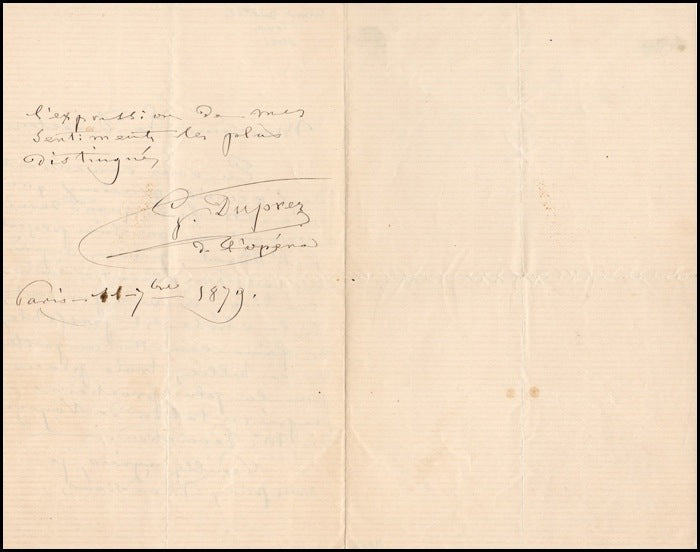 l'expression de mes
sentiments les plus
distingués
G. Duprez
de l'opéra
Paris - 11 - 7bre 1879.